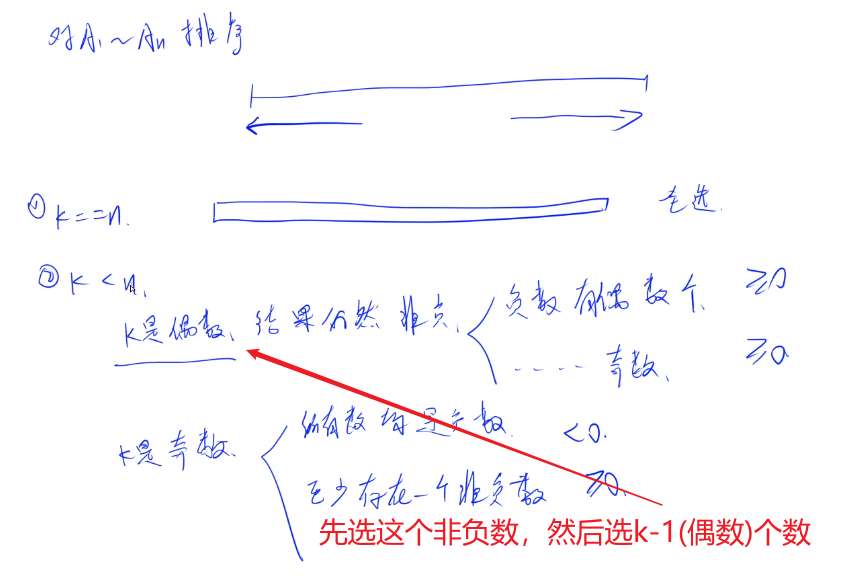 对A₁~Aₙ排序
① k==n. 毛选.
② k<n.
k是偶数、结果仍然非负、负数有偶数个. ≥0
.... 奇数、 ≥0
k是奇数. 所有数均是负数. <0.
至少存在一个非负数 ≥0.
先选这个非负数，然后选k-1(偶数)个数